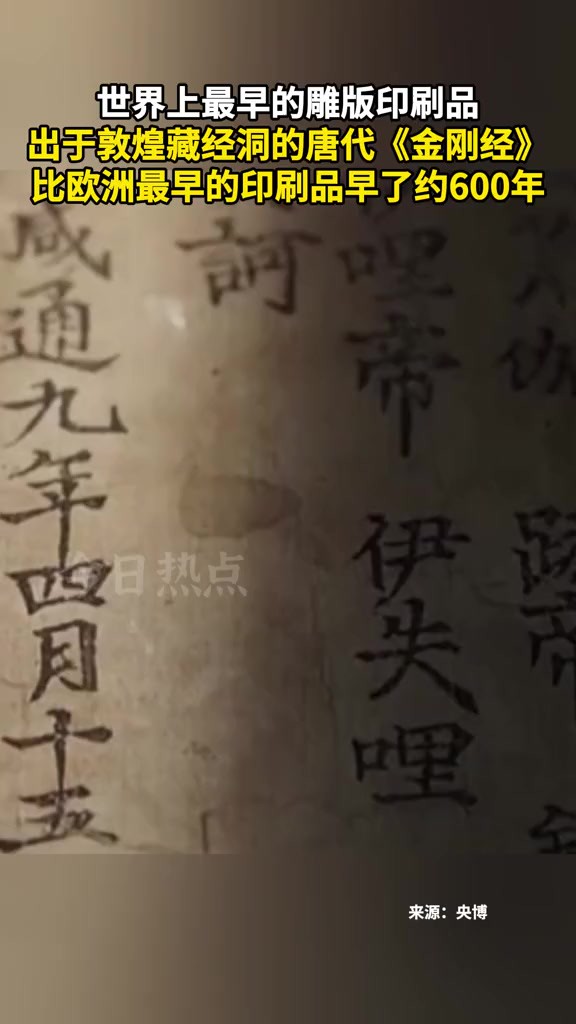 世界上最早的雕版印刷品
出于敦煌藏经洞的唐代《金刚经》
比欧洲最早的印刷品早了约600年
帝
蹄帝
哩帝 伊失哩
訶
咸通九年四月十五
今日热点
来源：央博